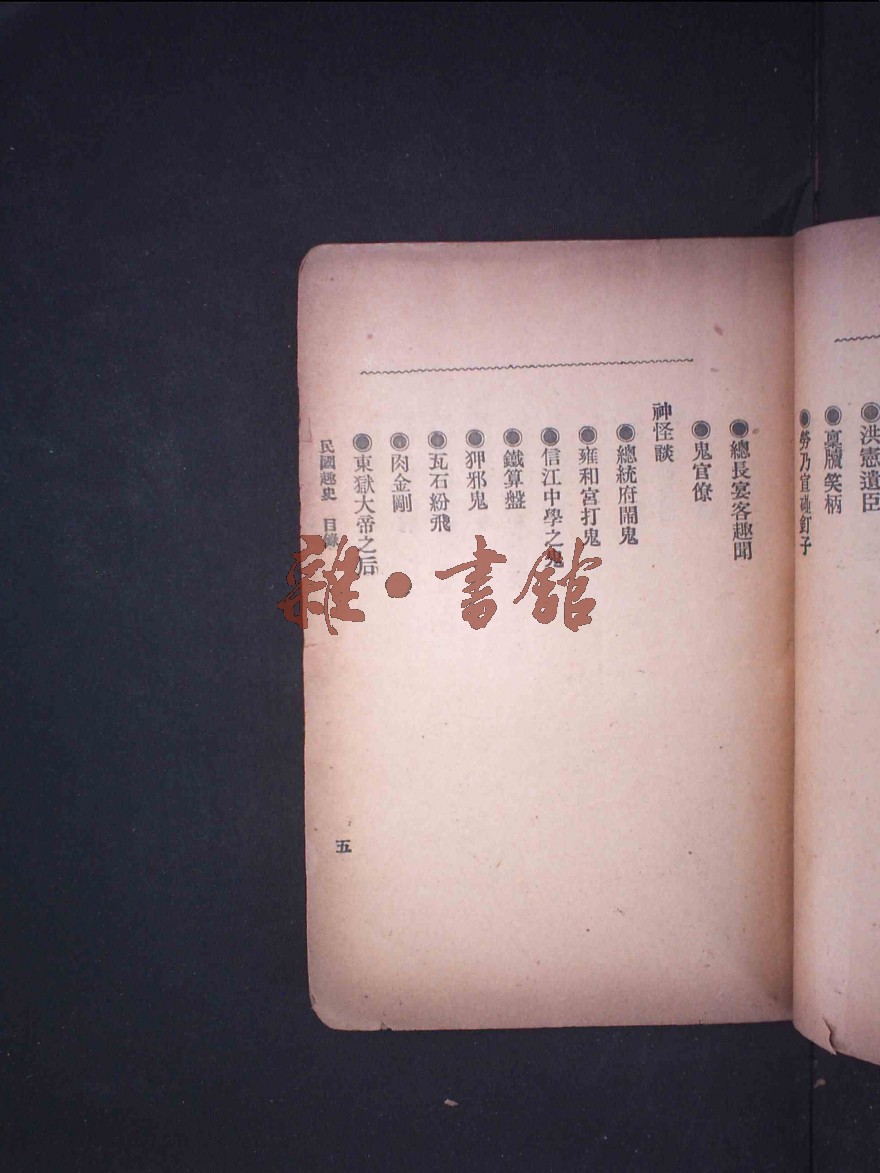 ◉洪憲遺臣
◉稟牘笑柄
◉勞乃宣碰釘子
◉總長宴客趣聞
◉鬼官僚
神怪談
◉總統府鬧鬼
◉雍和宮打鬼
◉信江中學之鬼
◉鐵算盤
◉狎邪鬼
◉瓦石紛飛
◉肉金剛
◉東獄大帝之后
民國趣史 目錄
五
雜·書館